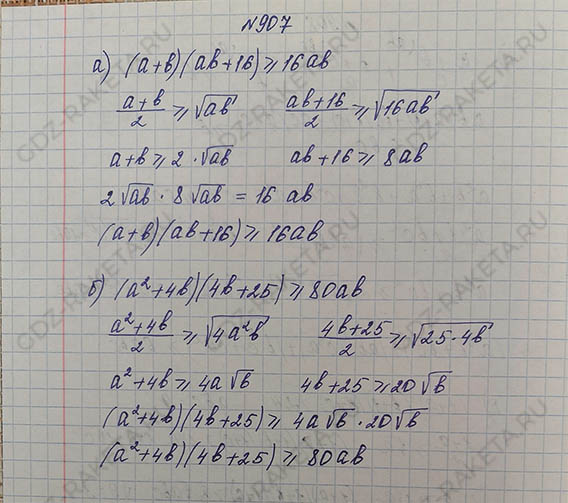 №907
а) (a+b)(ab+16)≥16ab
(a+b)/2 ≥ √ab (ab+16)/2 ≥ √16ab
a+b ≥ 2·√ab ab+16 ≥ 8ab
2√ab · 8√ab = 16 ab
(a+b)(ab+16)≥16ab
б) (a²+4b)(4b+25)≥80ab
(a²+4b)/2 ≥ √4a²b (4b+25)/2 ≥ √25·4b
a²+4b ≥ 4a√b 4b+25 ≥ 20√b
(a²+4b)(4b+25) ≥ 4a√b · 20√b
(a²+4b)(4b+25) ≥ 80ab
GDZ-RAKETA.RU
GDZ-RAKETA.RU
GDZ-RAKETA.RU
GDZ-RAKETA.RU